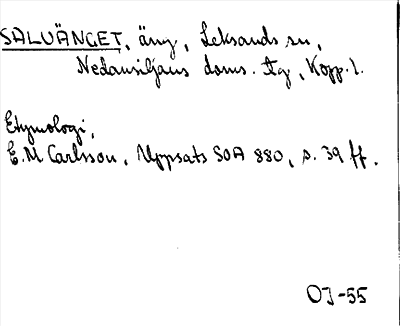 SALUÄNGET, äng, Leksands sn,
Nedansiljans doms. tg, Kopp. l.
Etymologi,
E. M Carlsson, Uppsats SOA 880, s. 39 ff.
OJ-55